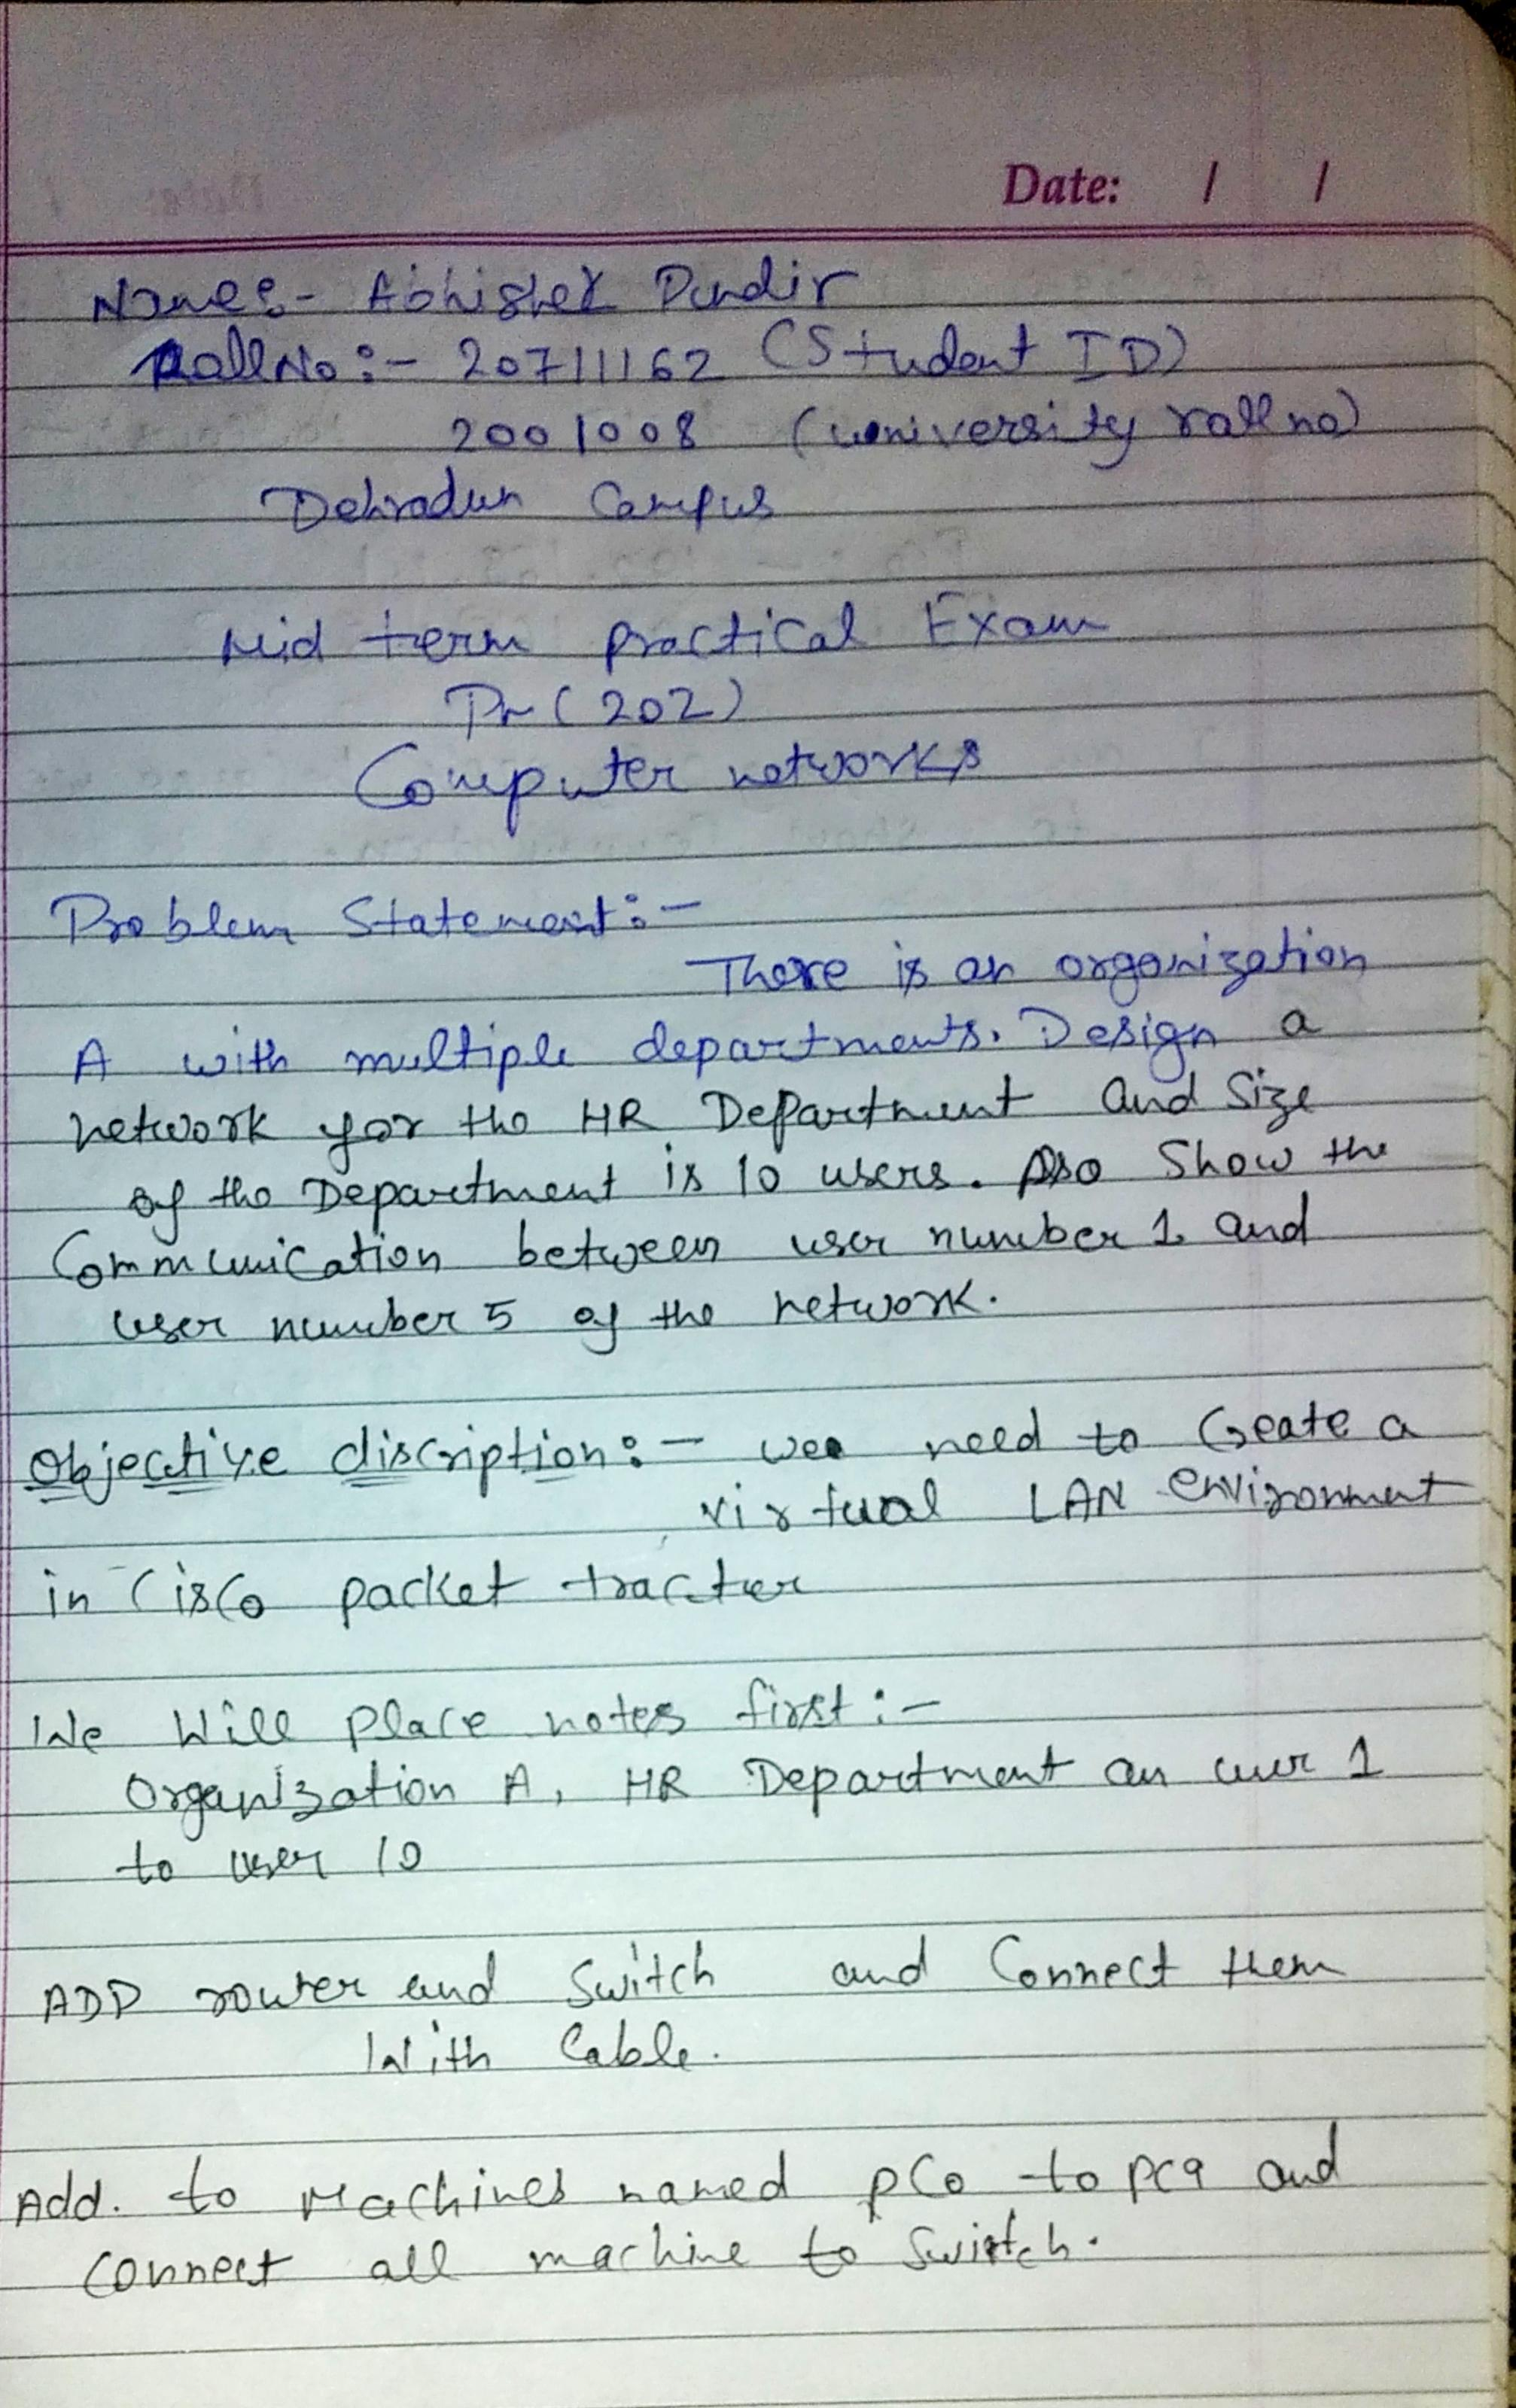 Date: / /
Name:- Abhishek Pundir
Roll No:- 20711162 (Student ID)
2001008 (university roll no)
Dehradun Campus
Mid term practical Exam
Pr (202)
Computer networks
Problem Statement:-
There is an organization
A with multiple departments. Design a
network for the HR Department and Size
of the Department is 10 users. Also Show the
Communication between user number 1 and
user number 5 of the network.
Objective discription:- we need to Create a
virtual LAN environment
in Cisco packet tracter
We Will place notes first:-
Organization A, HR Department an user 1
to user 10
ADD router and Switch and Connect them
With Cable.
Add. to Machines named PC0 to PC9 and
connect all machine to Switch.